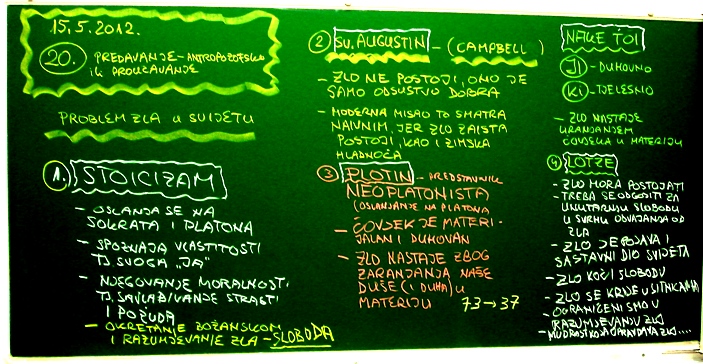 15.5.2012.
20. PREDAVANJE - ANTROPOZOFSKO
PROUČAVANJE
PROBLEM ZLA U SVIJETU
1. STOICIZAM
- OSLANJA SE NA
SOKRATA I PLATONA
- SPOZNAJA VLASTITOSTI
TJ. SVOGA "JA"
- NJEGOVANJE MORALNOSTI
TJ. SAVLAĐIVANJE STRASTI
I POŽUDA
- OKRETANJE BOŽANSKOM
I RAZUMJEVANJE ZLA - SLOBODA
2 SV. AUGUSTIN - (CAMPBELL)
- ZLO NE POSTOJI, ONO JE
SAMO ODSUSTVO DOBRA
- MODERNA MISAO TO SMATRA
NAIVNIM, JER ZLO ZAISTA
POSTOJI, KAO I ZIMSKA
HLADNOĆA
3 PLOTIN - PREDSTAVNIK
NEOPLATONISTA
(OSLANJANJE NA PLATONA)
- ČOVJEK JE MATERI-
JALAN I DUHOVAN
- ZLO NASTAJE ZBOG
ZARANJANJA NAŠE
DUŠE (I DUHA) U
MATERIJU
73 → 37
JI - DUHOVNO
KI - TJELESNO
- ZLO NASTAJE
URANJANJEM
ČOVJEKA U MATERIJU
4 LOTZE
- ZLO MORA POSTOJATI
- TREBA SE ODGOJITI ZA
UNUTARNJU SLOBODU
U SVRHU ODVAJANJA OD
ZLA
- ZLO JE POJAVA I
SASTAVNI DIO SVIJETA
- ZLO KOČI SLOBODU
- ZLO SE KRIJE U SITNICAMA
- OGRANIČENI SMO U
RAZUMJEVANJU ZLA
- MUDROST KOJA OPRAVDAVA ZLO....